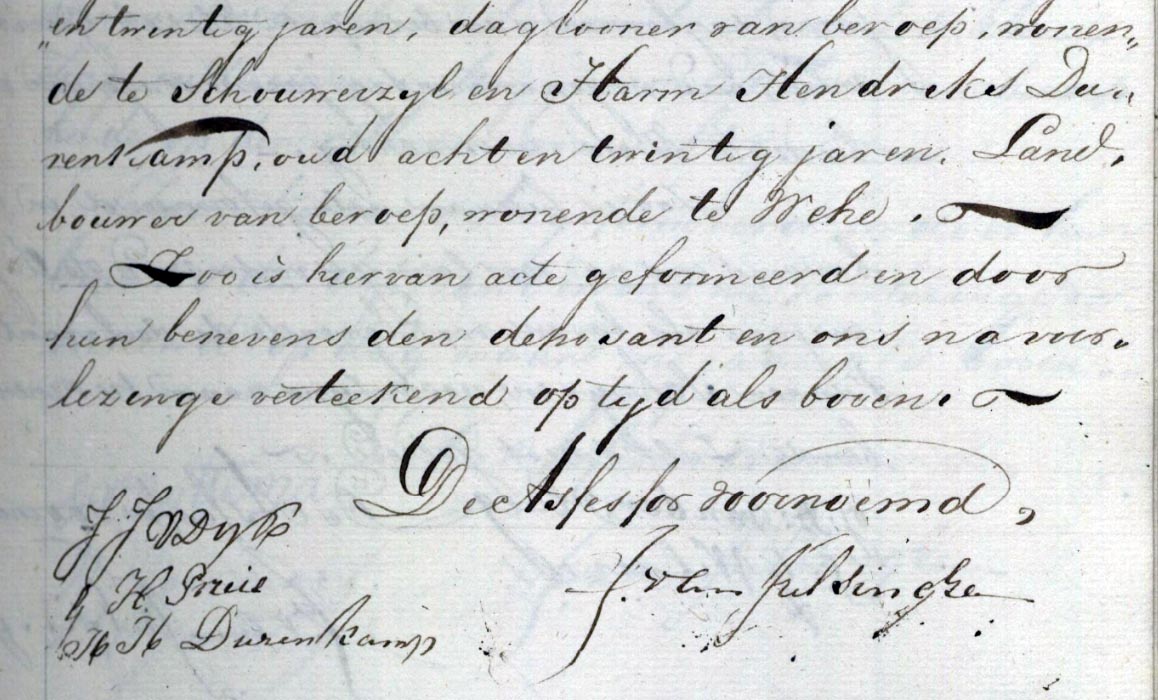 en twintig jaren, daglooner van beroep, wonen„
de te Schouwerzyl en Harm Hendreks Du„
renkamp, oud acht en twintig jaren, Land„
bouwer van beroep, wonende te Wehe.
Zoo is hiervan acte geformeerd en door
hun benevens den deposant en ons na voor„
lezinge verteekend op tyd als boven.
De Assessor voornoemd,
J J V Dyk
K
H H Durenkamp
J. van